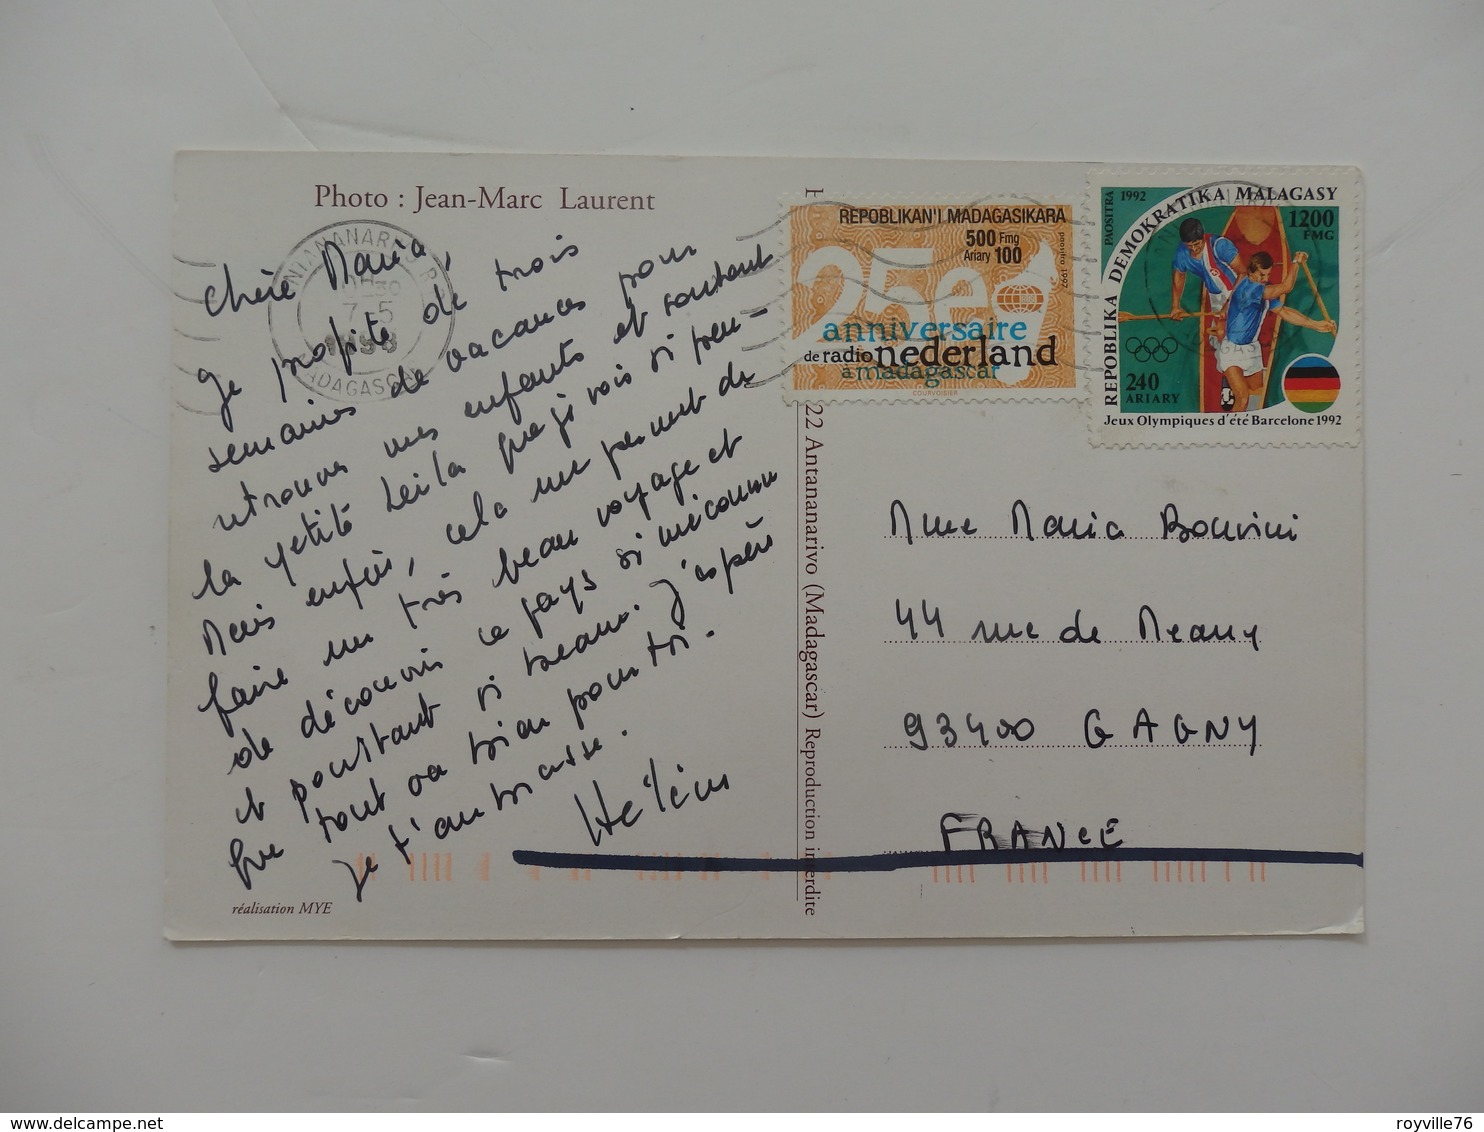 Photo : Jean-Marc Laurent
Chère Maria,
Je profite de trois
semaines de vacances pour
retrouver mes enfants et surtout
la petite Leila que je vois si peu -
Mais enfin, cela me permet de
faire un très beau voyage et
de découvrir ce pays si méconnu
et pourtant si beau. J'espère
que tout va bien pour toi.
Je t'embrasse.
Hélène
réalisation MYE
22 Antananarivo (Madagascar) Reproduction interdite
7-5
MADAGASCAR
REPOBLIKAN'I MADAGASIKARA
500 Fmg
Ariary 100
paositra 1997
25e
anniversaire
de radio nederland
à madagascar
COURVOISIER
PAOSITRA 1992
REPOBLIKA DEMOKRATIKA MALAGASY
1200
FMG
240
ARIARY
Jeux Olympiques d'été Barcelone 1992
Mme Maria Bouvini
44 rue de Meaux
93400 GAGNY
FRANCE
delcampe.net
royville76